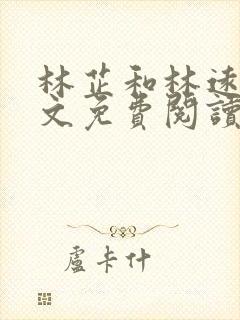 林芷和林远
文免費閱讀
盧卡什